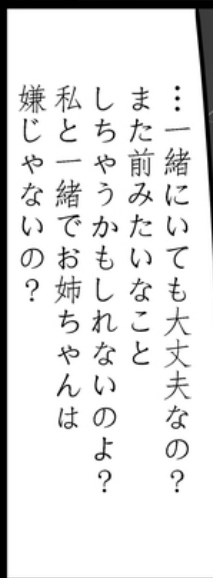 …一緒にいても大丈夫なの？
また前みたいなこと
しちゃうかもしれないのよ？
私と一緒でお姉ちゃんは
嫌じゃないの？